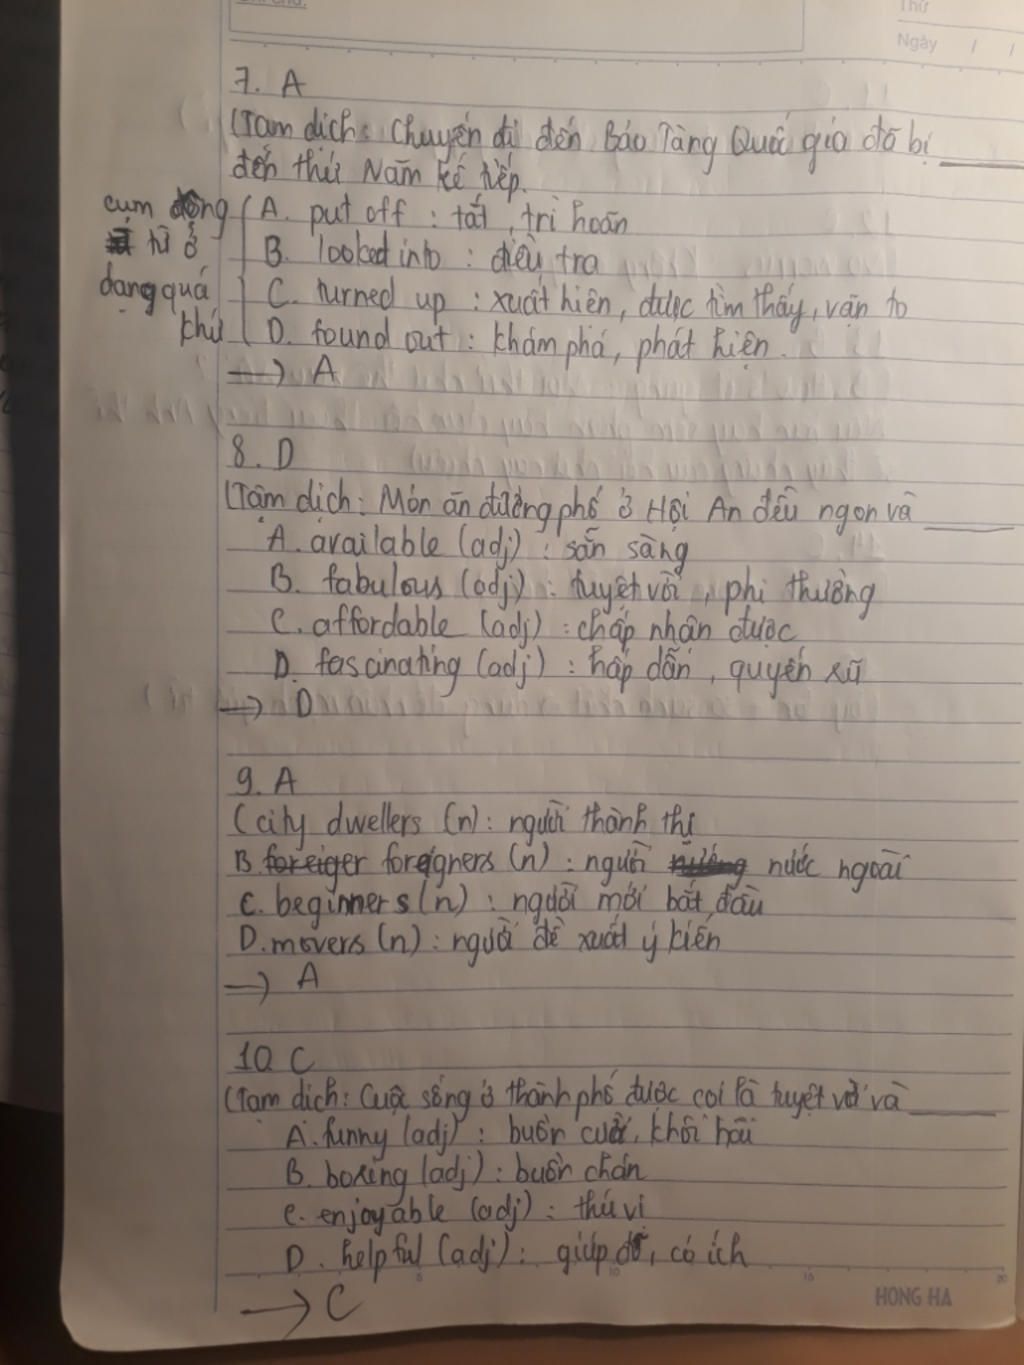 Thứ
Ngày / /
7. A
(Tạm dịch: Chuyến đi đến Bảo Tàng Quốc gia đã bị ____
đến thứ Năm kế tiếp.
cụm động từ ở dạng quá khứ
A. put off : tắt, trì hoãn
B. looked into : điều tra
C. turned up : xuất hiện, được tìm thấy, vặn to
D. found out : khám phá, phát hiện.
→ A
8. D
(Tạm dịch: Món ăn đường phố ở Hội An đều ngon và ____
A. available (adj) : sẵn sàng
B. fabulous (adj) : tuyệt vời, phi thường
C. affordable (adj) : chấp nhận được
D. fascinating (adj) : hấp dẫn, quyến rũ
→ D
9. A
(city dwellers (n): người thành thị
B. foreigners (n) : người nước ngoài
C. beginners (n) : người mới bắt đầu
D. movers (n) : người đề xuất ý kiến
→ A
10. C
(Tạm dịch: Cuộc sống ở thành phố được coi là tuyệt vời và ____
A. funny (adj) : buồn cười, khôi hài
B. boring (adj) : buồn chán
C. enjoyable (adj) : thú vị
D. helpful (adj) : giúp đỡ, có ích
→ C
5 10 15 20
HONG HA